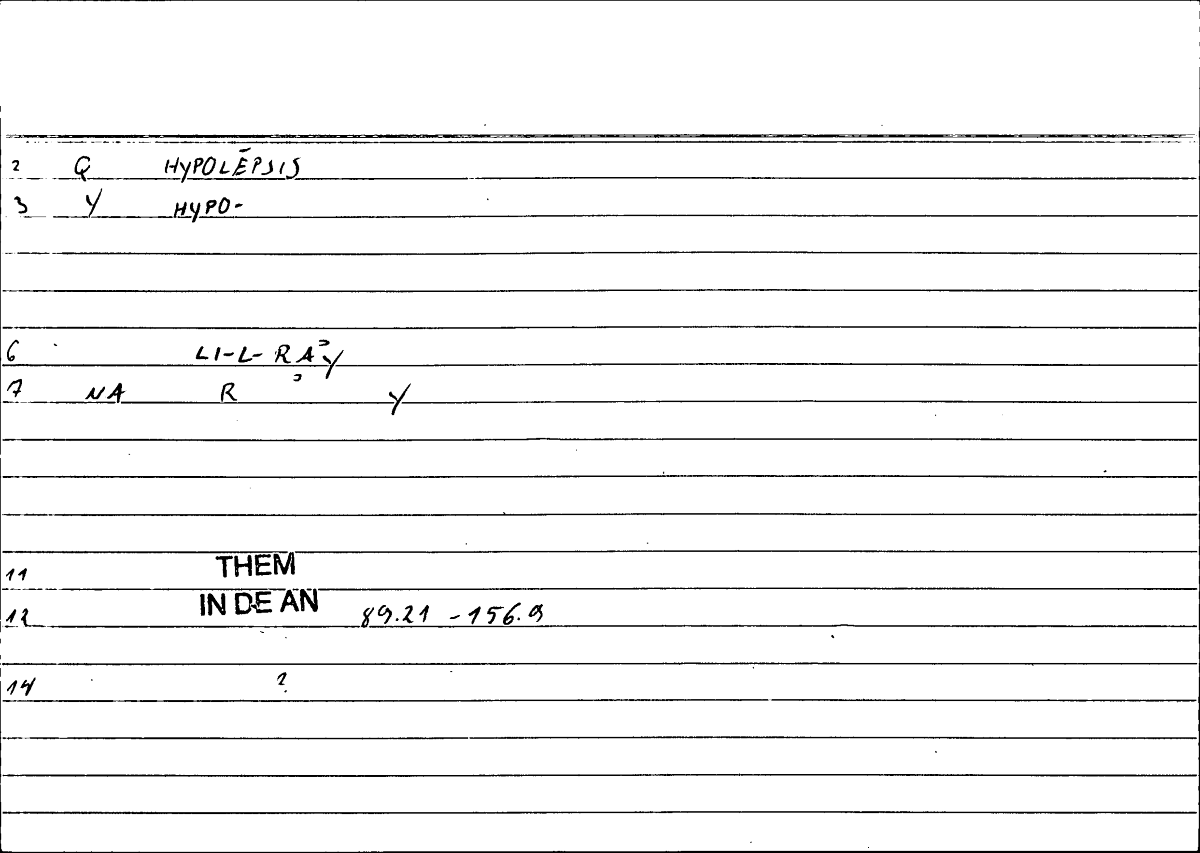 2 Q HYPOLĒPSIS
3 Y HYPO-
6 LI-L-RAʾY
7 NA RʾY
11 THEM
12 IN DE AN 89.21 -156.9
14 ?